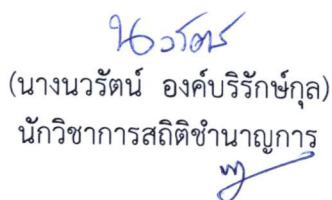 นวรัตน์
(นางนวรัตน์  องค์บริรักษ์กุล)
นักวิชาการสถิติชำนาญการ